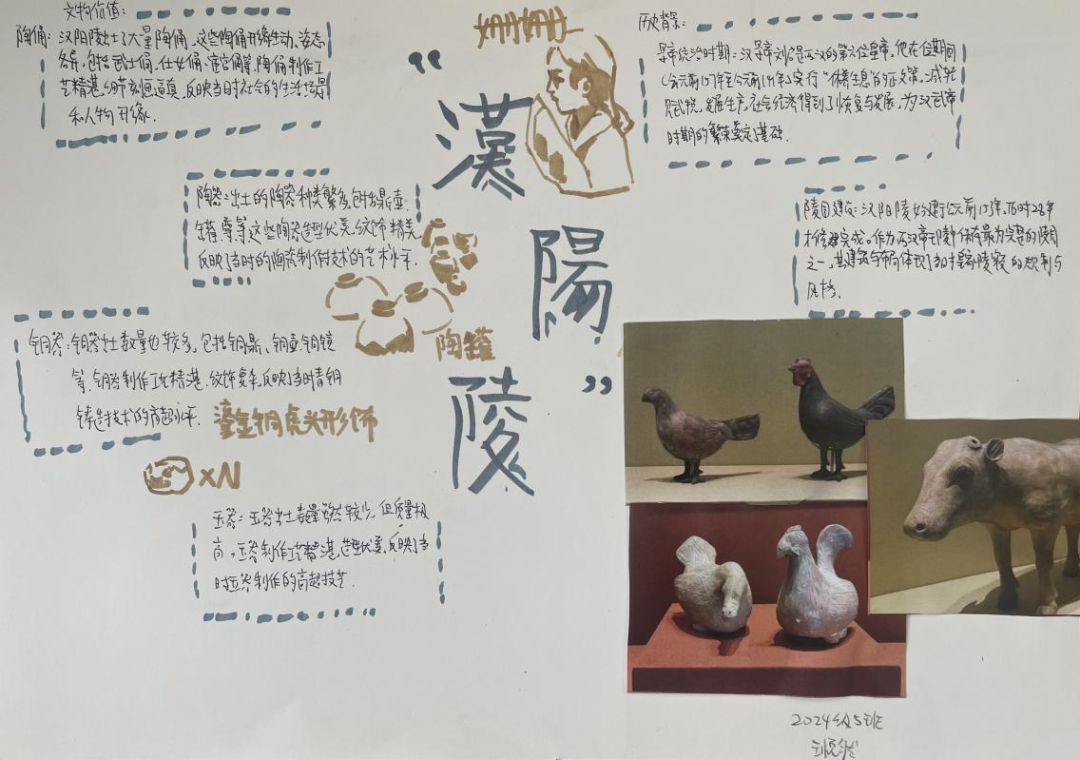 文物价值:
陶俑: 汉阳陵出土了大量陶俑,这些陶俑形缘生动,姿态
各异,包括武士俑、仕女俑、宦官俑等,陶俑制作工
艺精湛,细节刻画逼真,反映当时社会的生活场景
和人物形缘.
陶器:出土的陶器种类繁多,包括鼎、壶、
罐、尊等这些陶瓷造型优美,纹饰精美,
反映了当时的陶瓷制作技术的艺术水平.
陶罐
铜器:铜器出土数量也较多,包括铜鼎、铜壶、铜镜
等,铜器制作工艺精湛,纹饰复杂,反映了当时青铜
铸造技术的高超水平.
鎏金铜虎头形饰
xN
玉器:玉器出土数量虽然较少,但质量极
高,玉器制作工艺精湛,造型优美,反映了当
时玉器制作的高超技艺.
“漢
陽
陵”
历史背景:
景帝统治时期:汉景帝刘启是西汉的第六位皇帝,他在位期间
(公元前157年至公元前141年)实行“休养生息”的政策,减轻
赋税,发展生产,社会经济得到了恢复与发展,为汉武帝
时期的繁荣奠定了基础.
陵园建设:汉阳陵始建于公元前153年,历时28年
才修建完成。作为西汉帝王陵中保存最为完整的陵园
之一,其建筑与布局体现了当时皇家陵寝的规制与
风格.
2024级5班